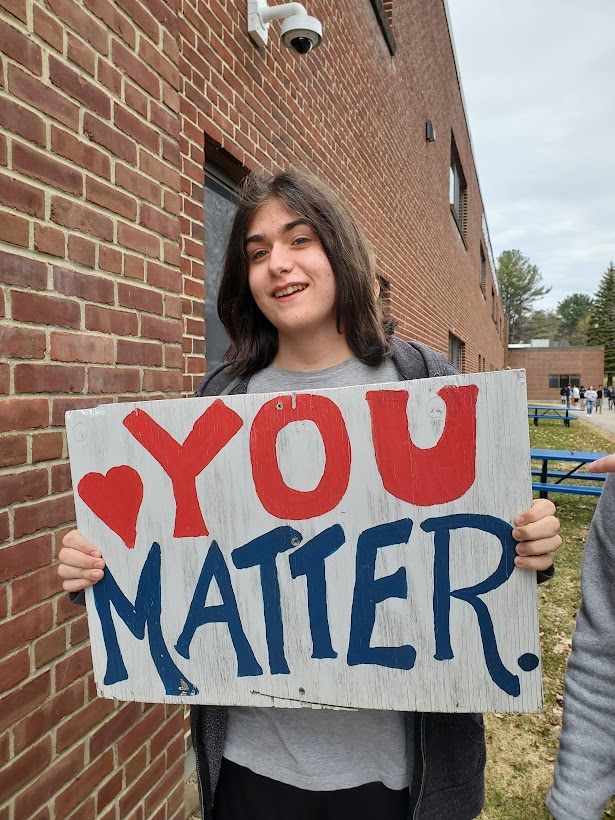 YOU
MATTER.